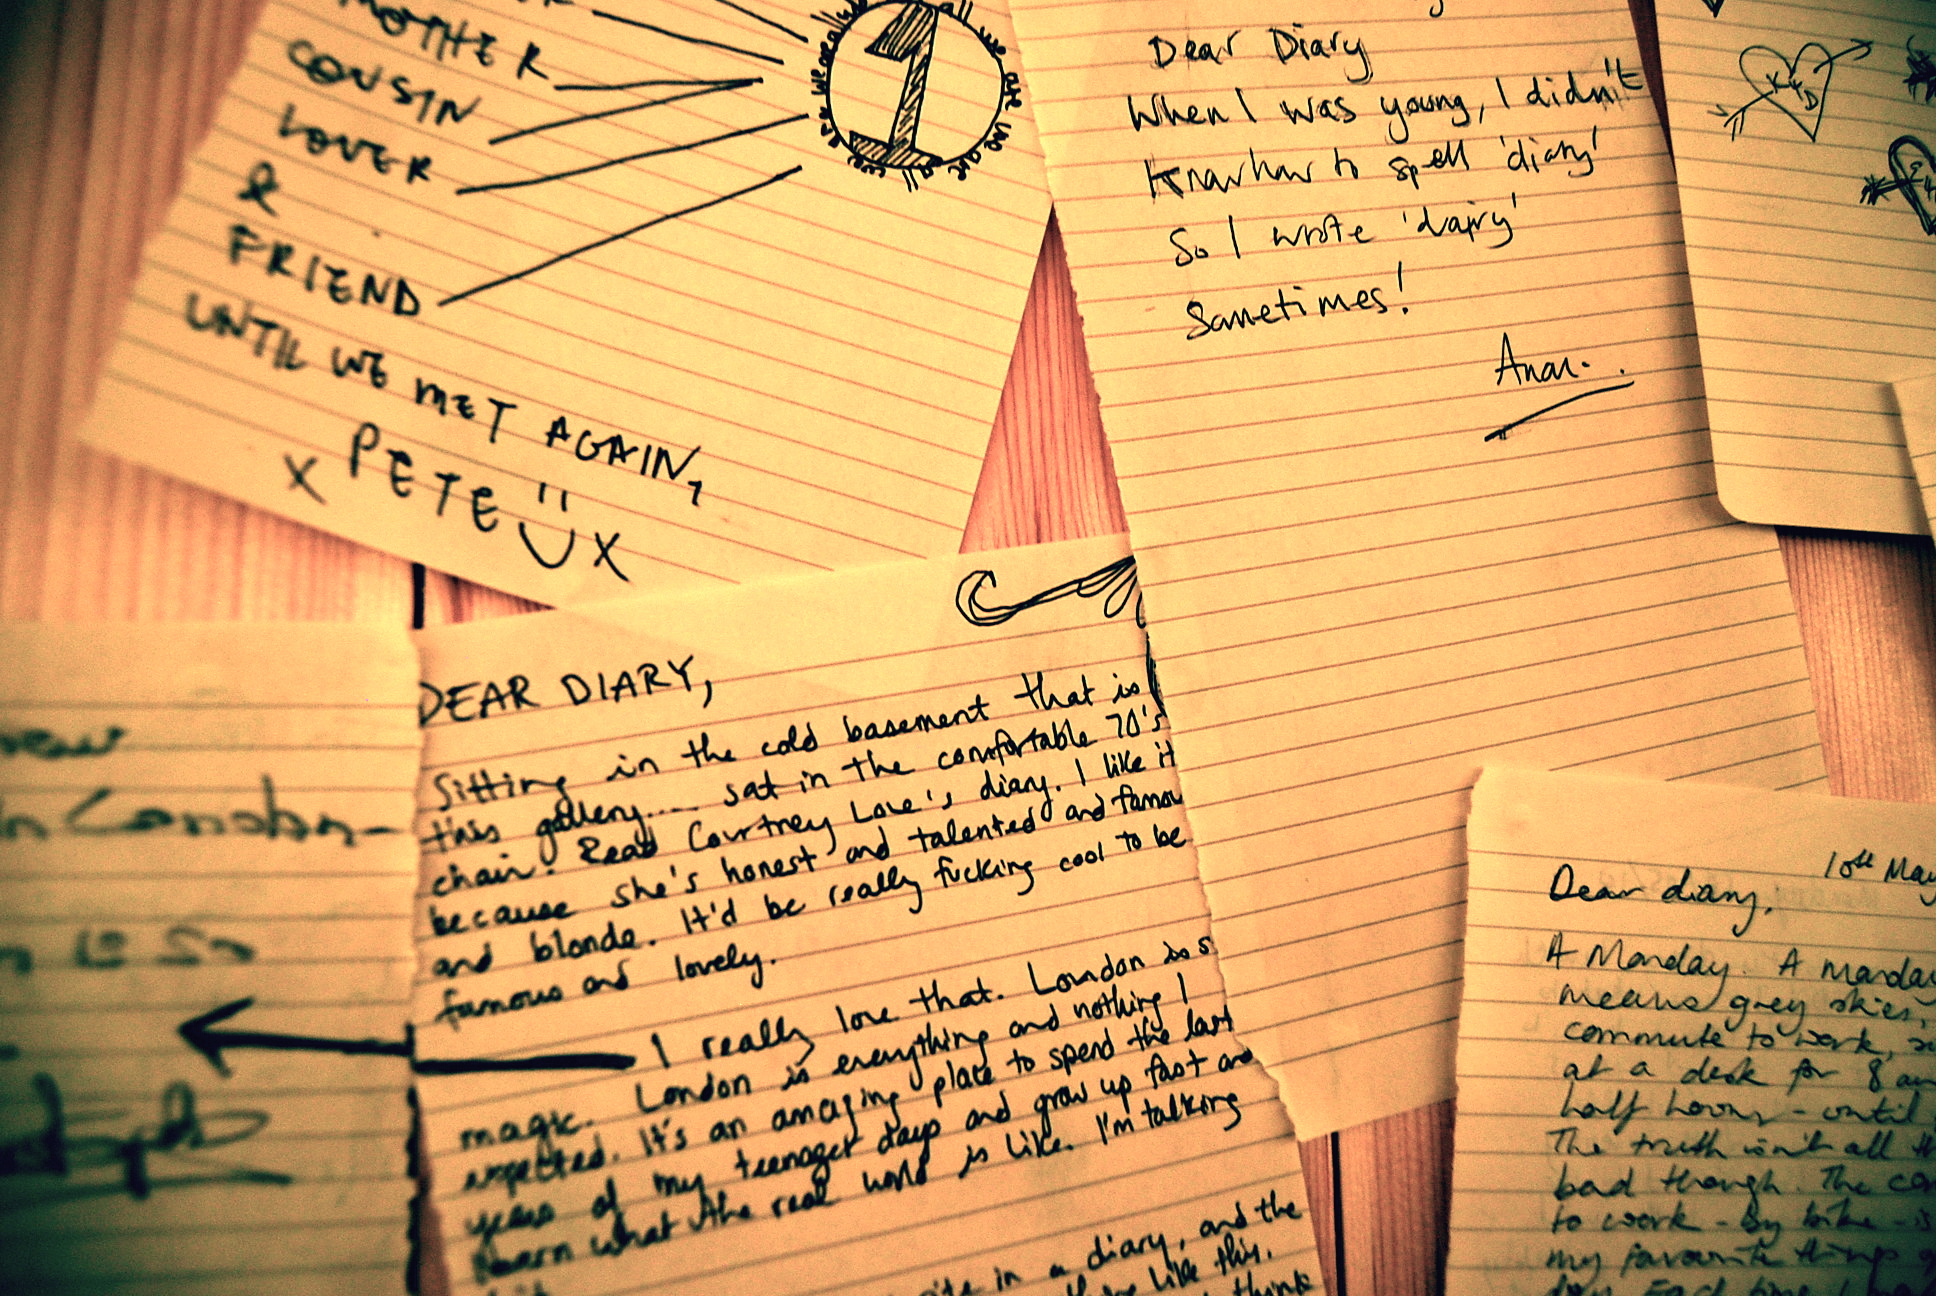 MOTHER
COUSIN
LOVER
&
FRIEND
UNTIL WE MET AGAIN,
x PETE x
1
all we are we are
Dear Diary
When I was young, I didn't
know how to spell 'diary'
So I wrote 'dairy'
Sometimes!
K + D
DEAR DIARY,
Sitting in the cold basement that is
this gallery.... sat in the comfortable 70's
chair. Read Courtney Love's diary. I like it
because she's honest and talented and famou
and blonde. It'd be really fucking cool to be
famous and lovely.
I really love that. London is s
magic. London is everything and nothing I
expected. It's an amazing place to spend the last
years of my teenager days and grow up fast and
learn what the real world is like. I'm talking
in a diary, and the
like this.
think
London-
10th May
Dear diary,
A Monday. A monday
means grey skies,
commute to work,
at a desk for 8 an
half hours - until
The truth isn't all th
bad though. The co
to work - by bike - is
my favourite things
day. Each time I